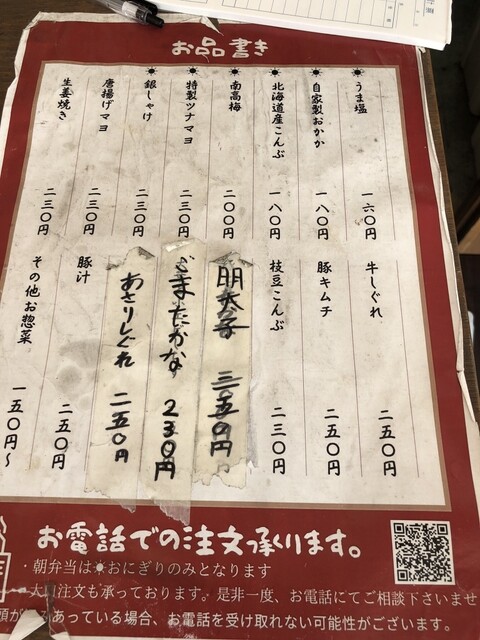 お品書き
☀うま塩 一六〇円
☀自家製おかか 一八〇円
☀北海道産こんぶ 一八〇円
☀南高梅 二〇〇円
☀特製ツナマヨ 二三〇円
☀銀しゃけ 二三〇円
唐揚げマヨ 二三〇円
生姜焼き 二三〇円
牛しぐれ 二五〇円
豚キムチ 二五〇円
枝豆こんぶ 二三〇円
明太子 三五〇円
ごまたかな 230円
あさりしぐれ 二五〇円
豚汁 二五〇円
その他お惣菜 一五〇円～
お電話での注文承ります。
・朝弁当は☀おにぎりのみとなります
注文も承っております。是非一度、お電話にてご相談下さいませ
あっている場合、お電話を受け取れない可能性がございます。